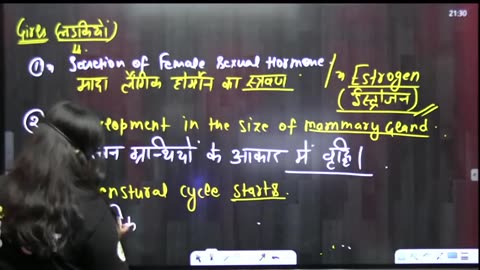 21:30
Girls (लडकियां)
① → Secretion of Female Sexual Hormone
मादा लैंगिक हार्मोन का स्त्रवण / → Estrogen
(ईस्ट्रोजन)
② velopment in the size of mammary gland.
ग्रन्थियों के आकार में वृद्धि।
nstural cycle starts.